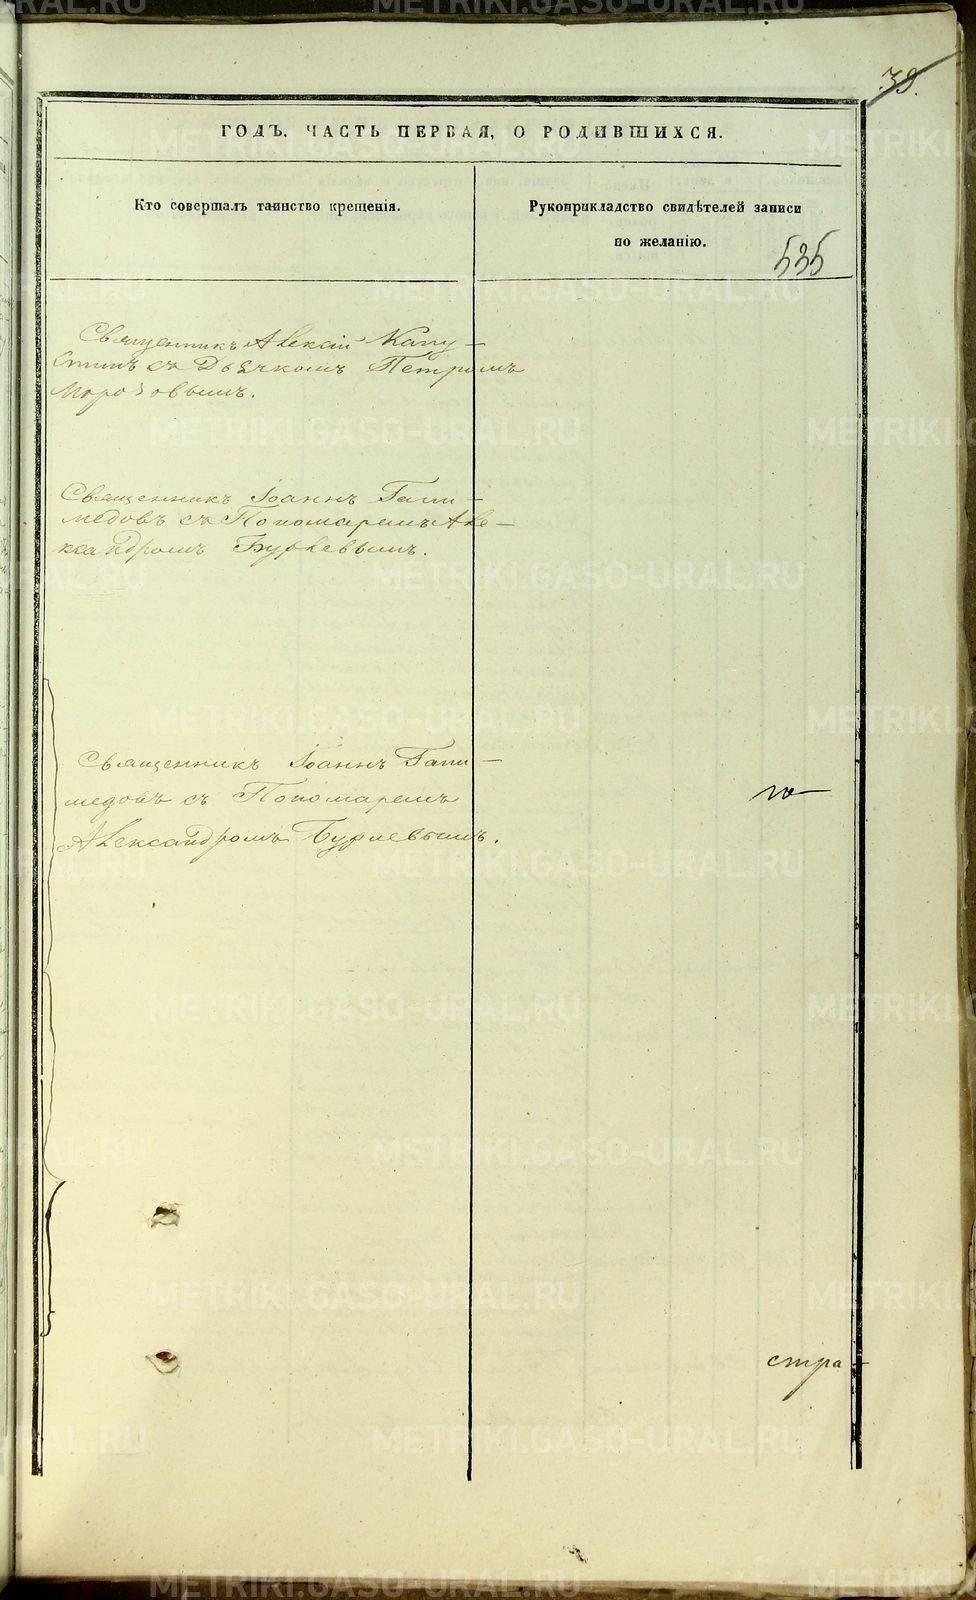 39.
ГОДЪ. ЧАСТЬ ПЕРВАЯ, О РОДИВШИХСЯ.
Кто совершалъ таинство крещенія.
Рукоприкладство свидѣтелей записи
по желанію.
535
Священникъ Алексій Капу-
стинъ съ Дьячкомъ Петромъ
Морозовымъ.
Священникъ Іоаннъ Гани-
медовъ съ Пономаремъ Але-
ксандромъ Бурлевымъ.
Священникъ Іоаннъ Гани-
медовъ съ Пономаремъ
Александромъ Бурлевымъ.
по
стра-
METRIKI.GASO-URAL.RU